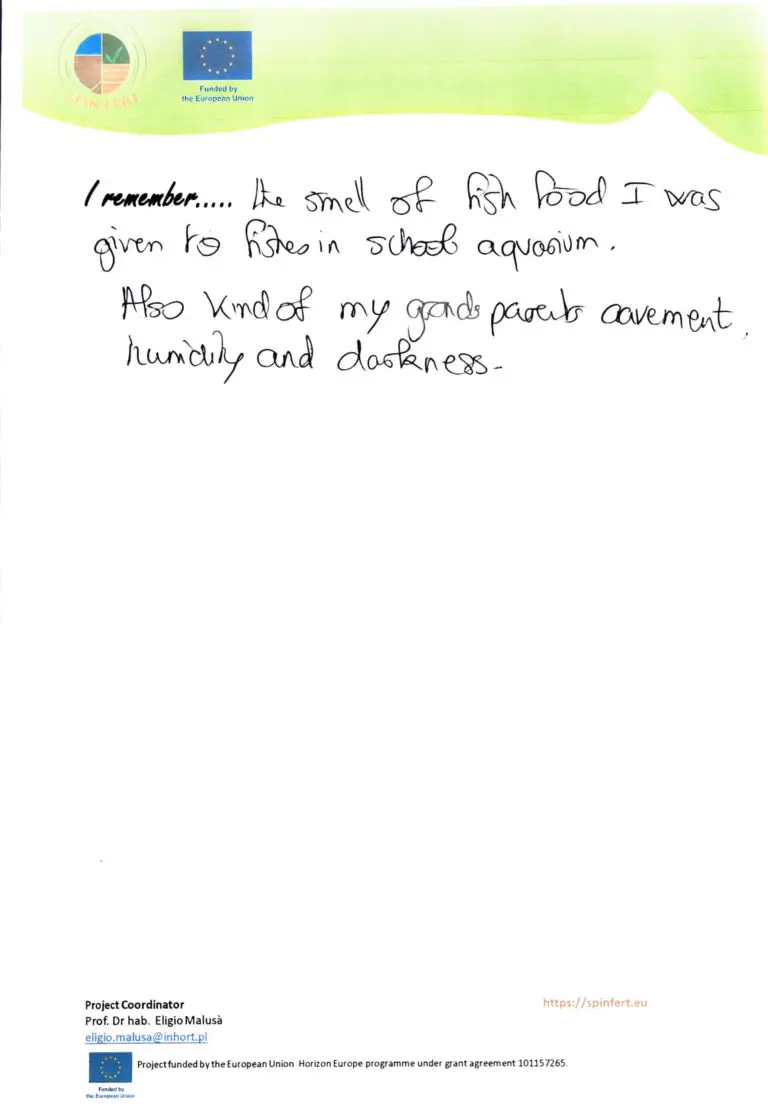 SPINFERT
Funded by
the European Union
I remember..... the smell of fish food I was
given to fishes in school aquarium.
Also kind of my grands parents cavement,
humidity and darkness-
Project Coordinator
Prof. Dr hab. Eligio Malusà
eligio.malusa@inhort.pl
https://spinfert.eu
Project funded by the European Union Horizon Europe programme under grant agreement 101157265.
Funded by
the European Union